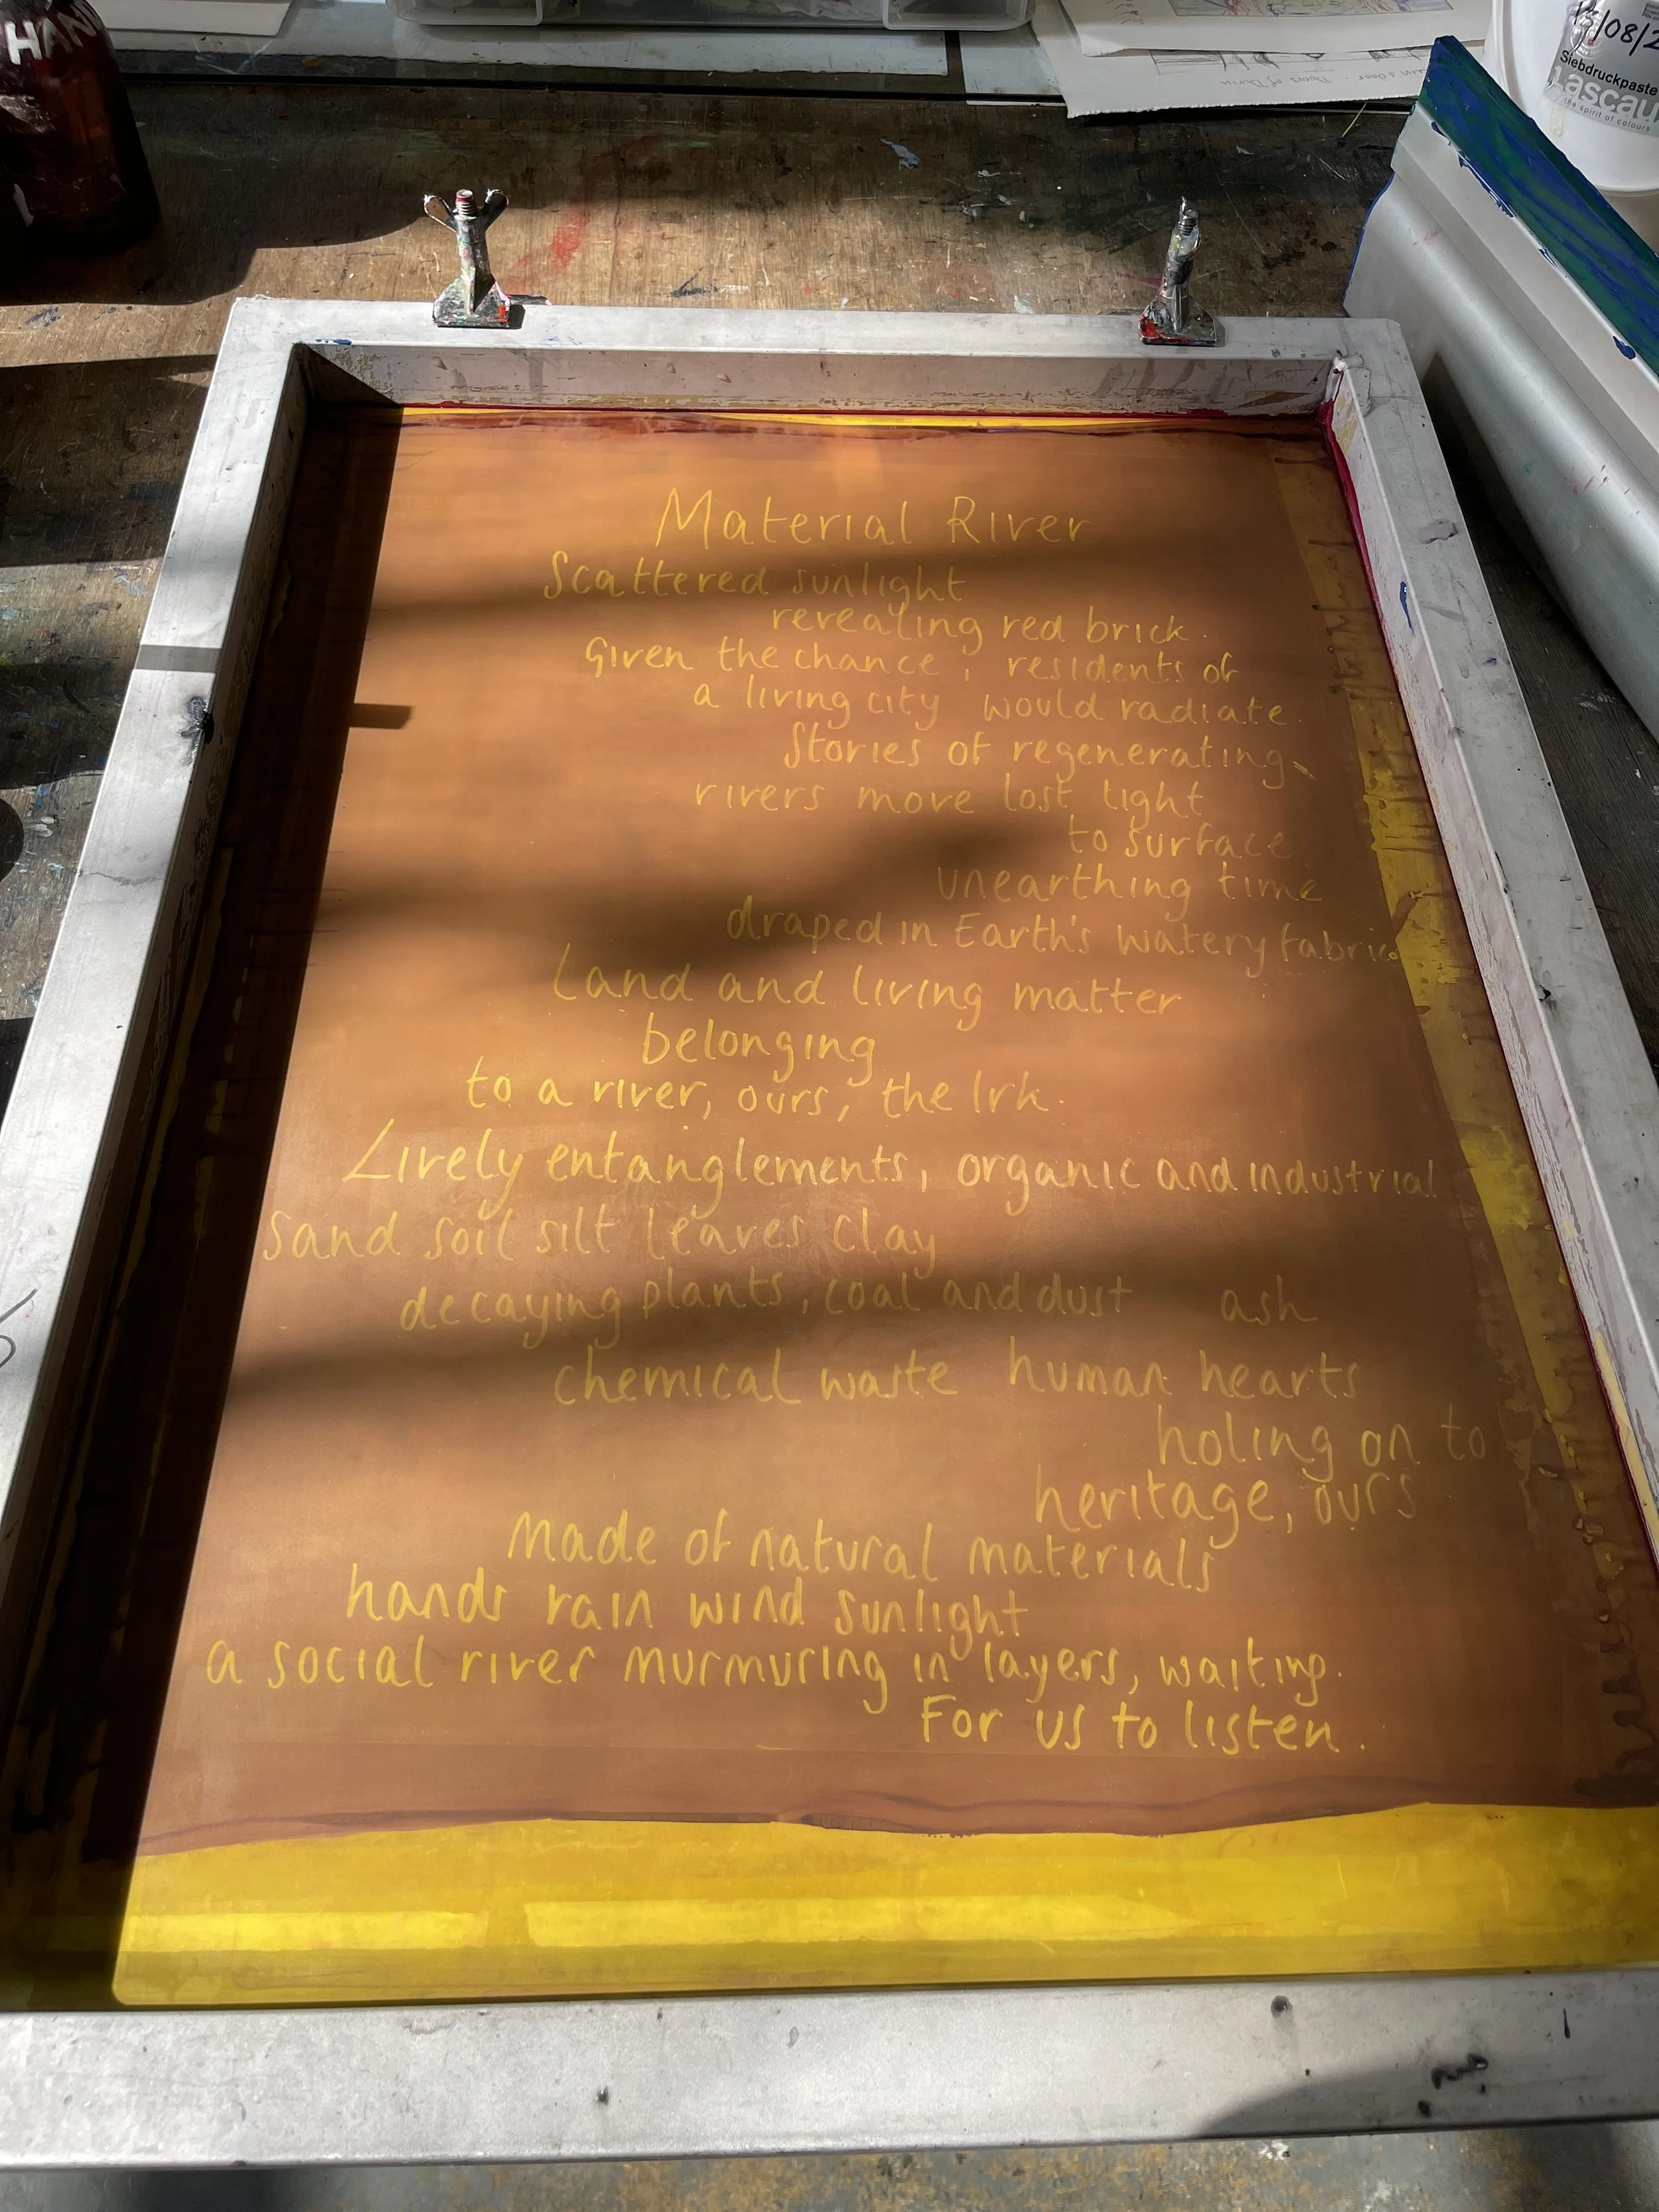 HAN
15/08/2
Siebdruckpaste
Lascau
the spirit of colours
Material River
Scattered sunlight
revealing red brick.
Given the chance, residents of
a living city would radiate.
Stories of regenerating
rivers move lost light
to surface
unearthing time
draped in Earth's watery fabric.
Land and living matter
belonging
to a river, ours, the Irk.
Lively entanglements, organic and industrial
Sand soil silt leaves clay
decaying plants, coal and dust ash
chemical waste human hearts
holing on to
heritage, ours
Made of natural materials
hands rain wind sunlight
a social river murmuring in layers, waiting.
For us to listen.